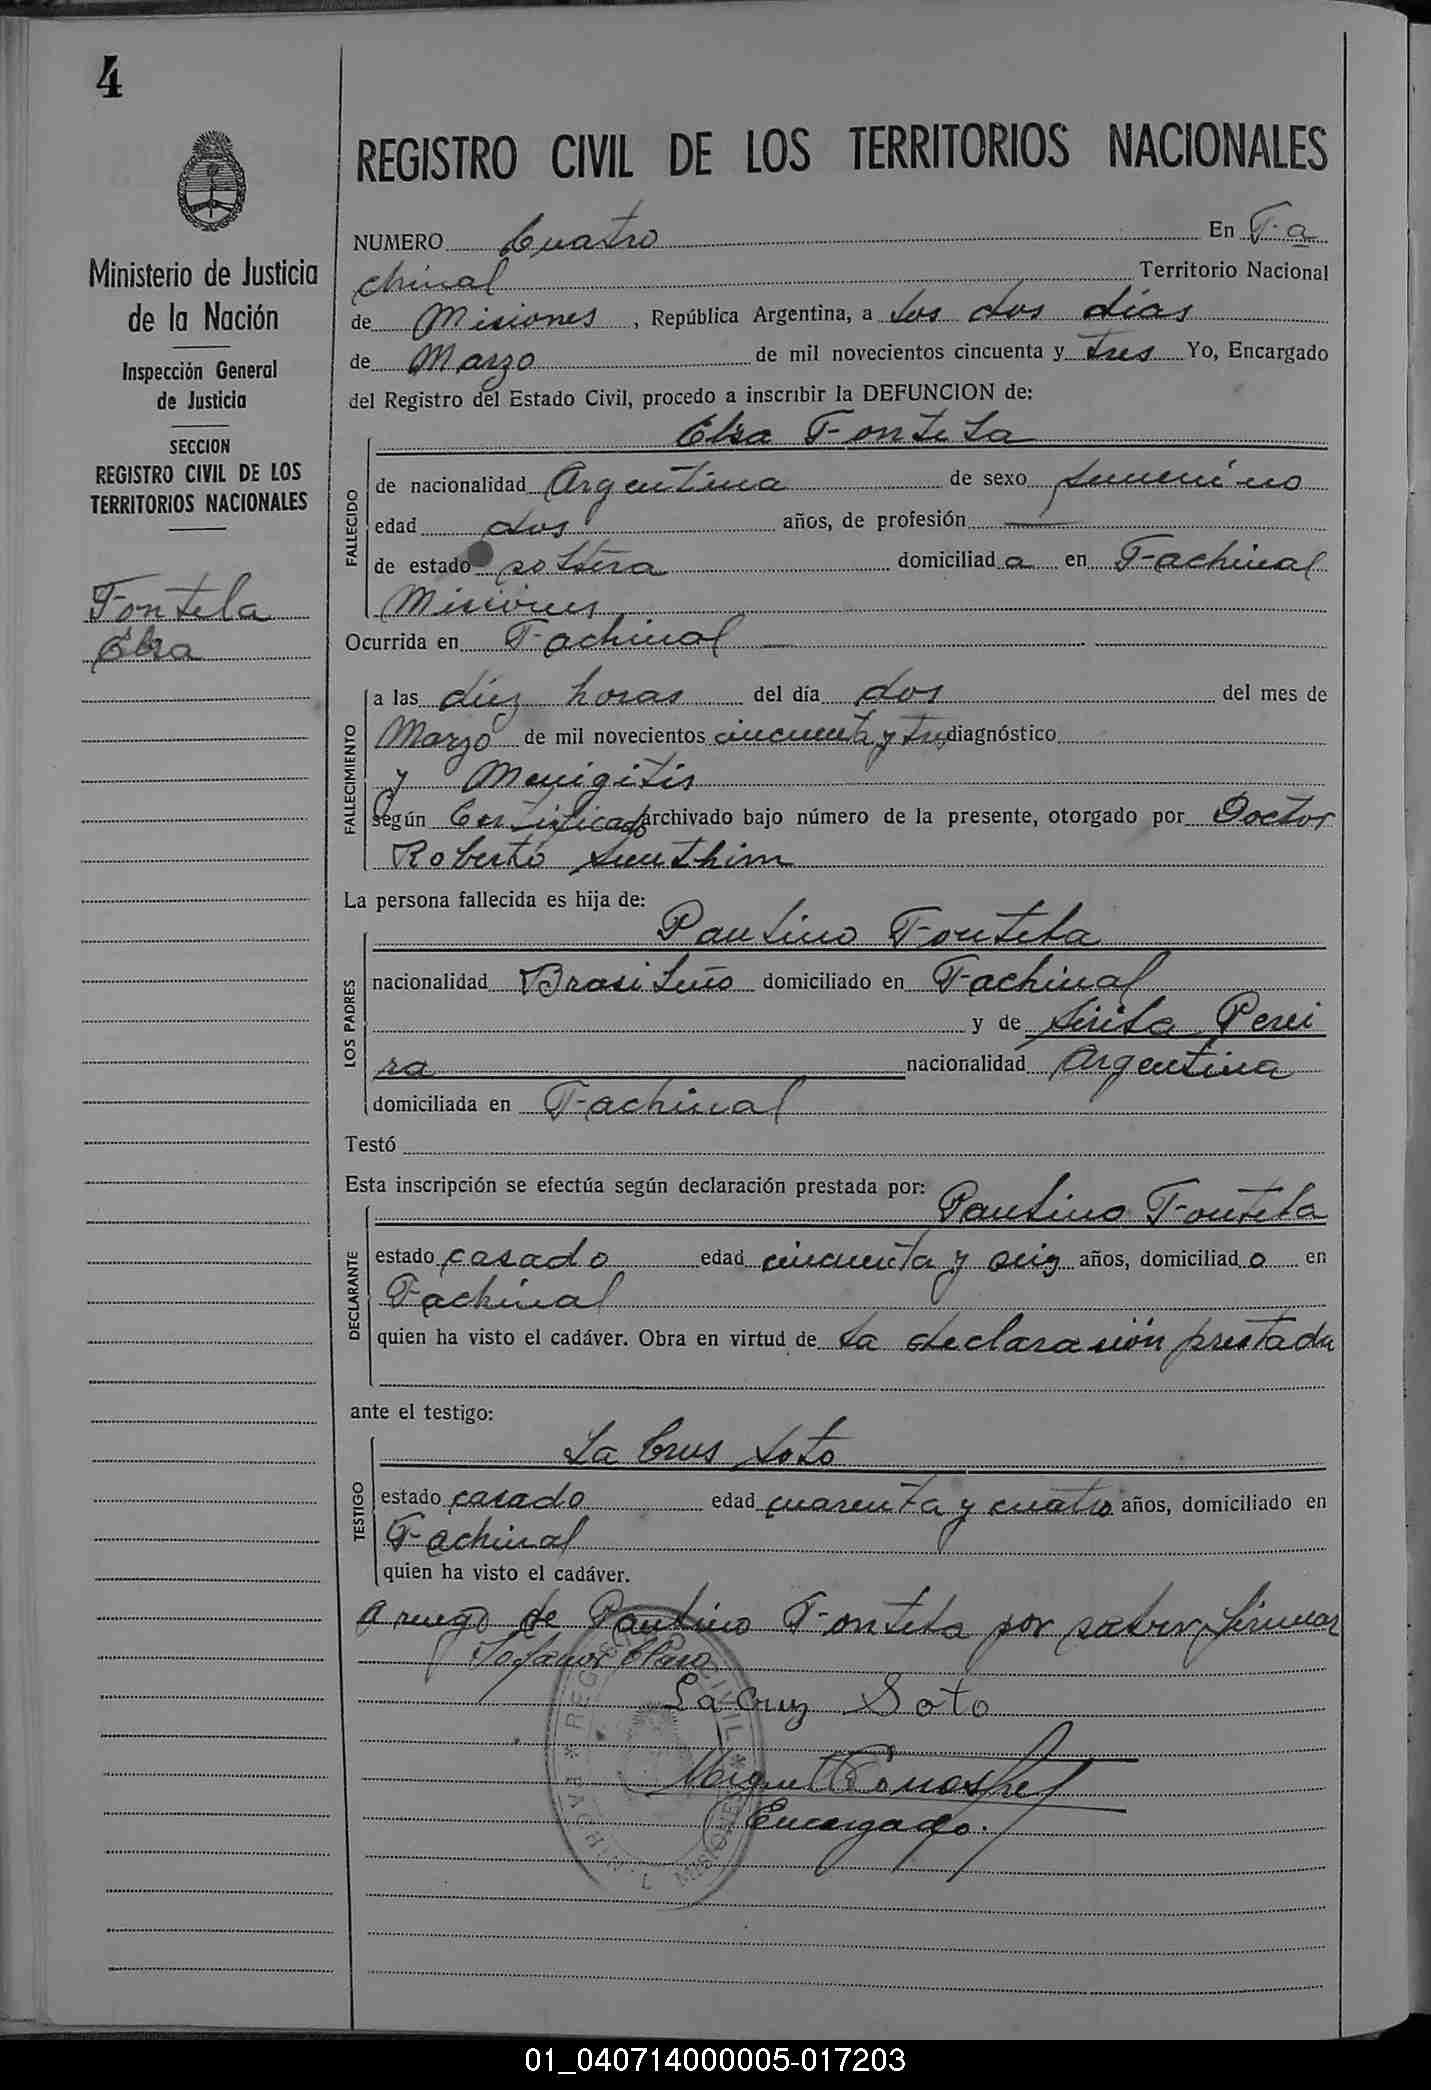 4
REGISTRO CIVIL DE LOS TERRITORIOS NACIONALES
Ministerio de Justicia
de la Nación
Inspección General
de Justicia
SECCION
REGISTRO CIVIL DE LOS
TERRITORIOS NACIONALES
Fontela
Elsa
NUMERO Cuatro En Fa
chinal Territorio Nacional
de Misiones, República Argentina, a los dos días
de Marzo de mil novecientos cincuenta y tres Yo, Encargado
del Registro del Estado Civil, procedo a inscribir la DEFUNCION de:
Elsa Fontela
FALLECIDO
de nacionalidad Argentina de sexo femenino
edad dos años, de profesión —
de estado soltera domiciliada en Fachinal
Misiones
Ocurrida en Fachinal
FALLECIMIENTO
a las diez horas del día dos del mes de
Marzo de mil novecientos cincuenta y tres diagnóstico
y Menigitis
según Certificado archivado bajo número de la presente, otorgado por Doctor
Roberto
La persona fallecida es hija de:
LOS PADRES
Paulino Fontela
nacionalidad Brasileño domiciliado en Fachinal
y de Perei
ra nacionalidad Argentina
domiciliada en Fachinal
Testó
Esta inscripción se efectúa según declaración prestada por:
DECLARANTE
Paulino Fontela
estado casado edad cincuenta y seis años, domiciliado en
Fachinal
quien ha visto el cadáver. Obra en virtud de la declarasión prestada
ante el testigo:
TESTIGO
La Crus Soto
estado casado edad cuarenta y cuatro años, domiciliado en
Fachinal
quien ha visto el cadáver.
A ruego de Paulino Fontela por saber firmar
La Cruz Soto
Miguel
Encargado.
REGISTRO CIVIL
MISIONES
01_040714000005-017203